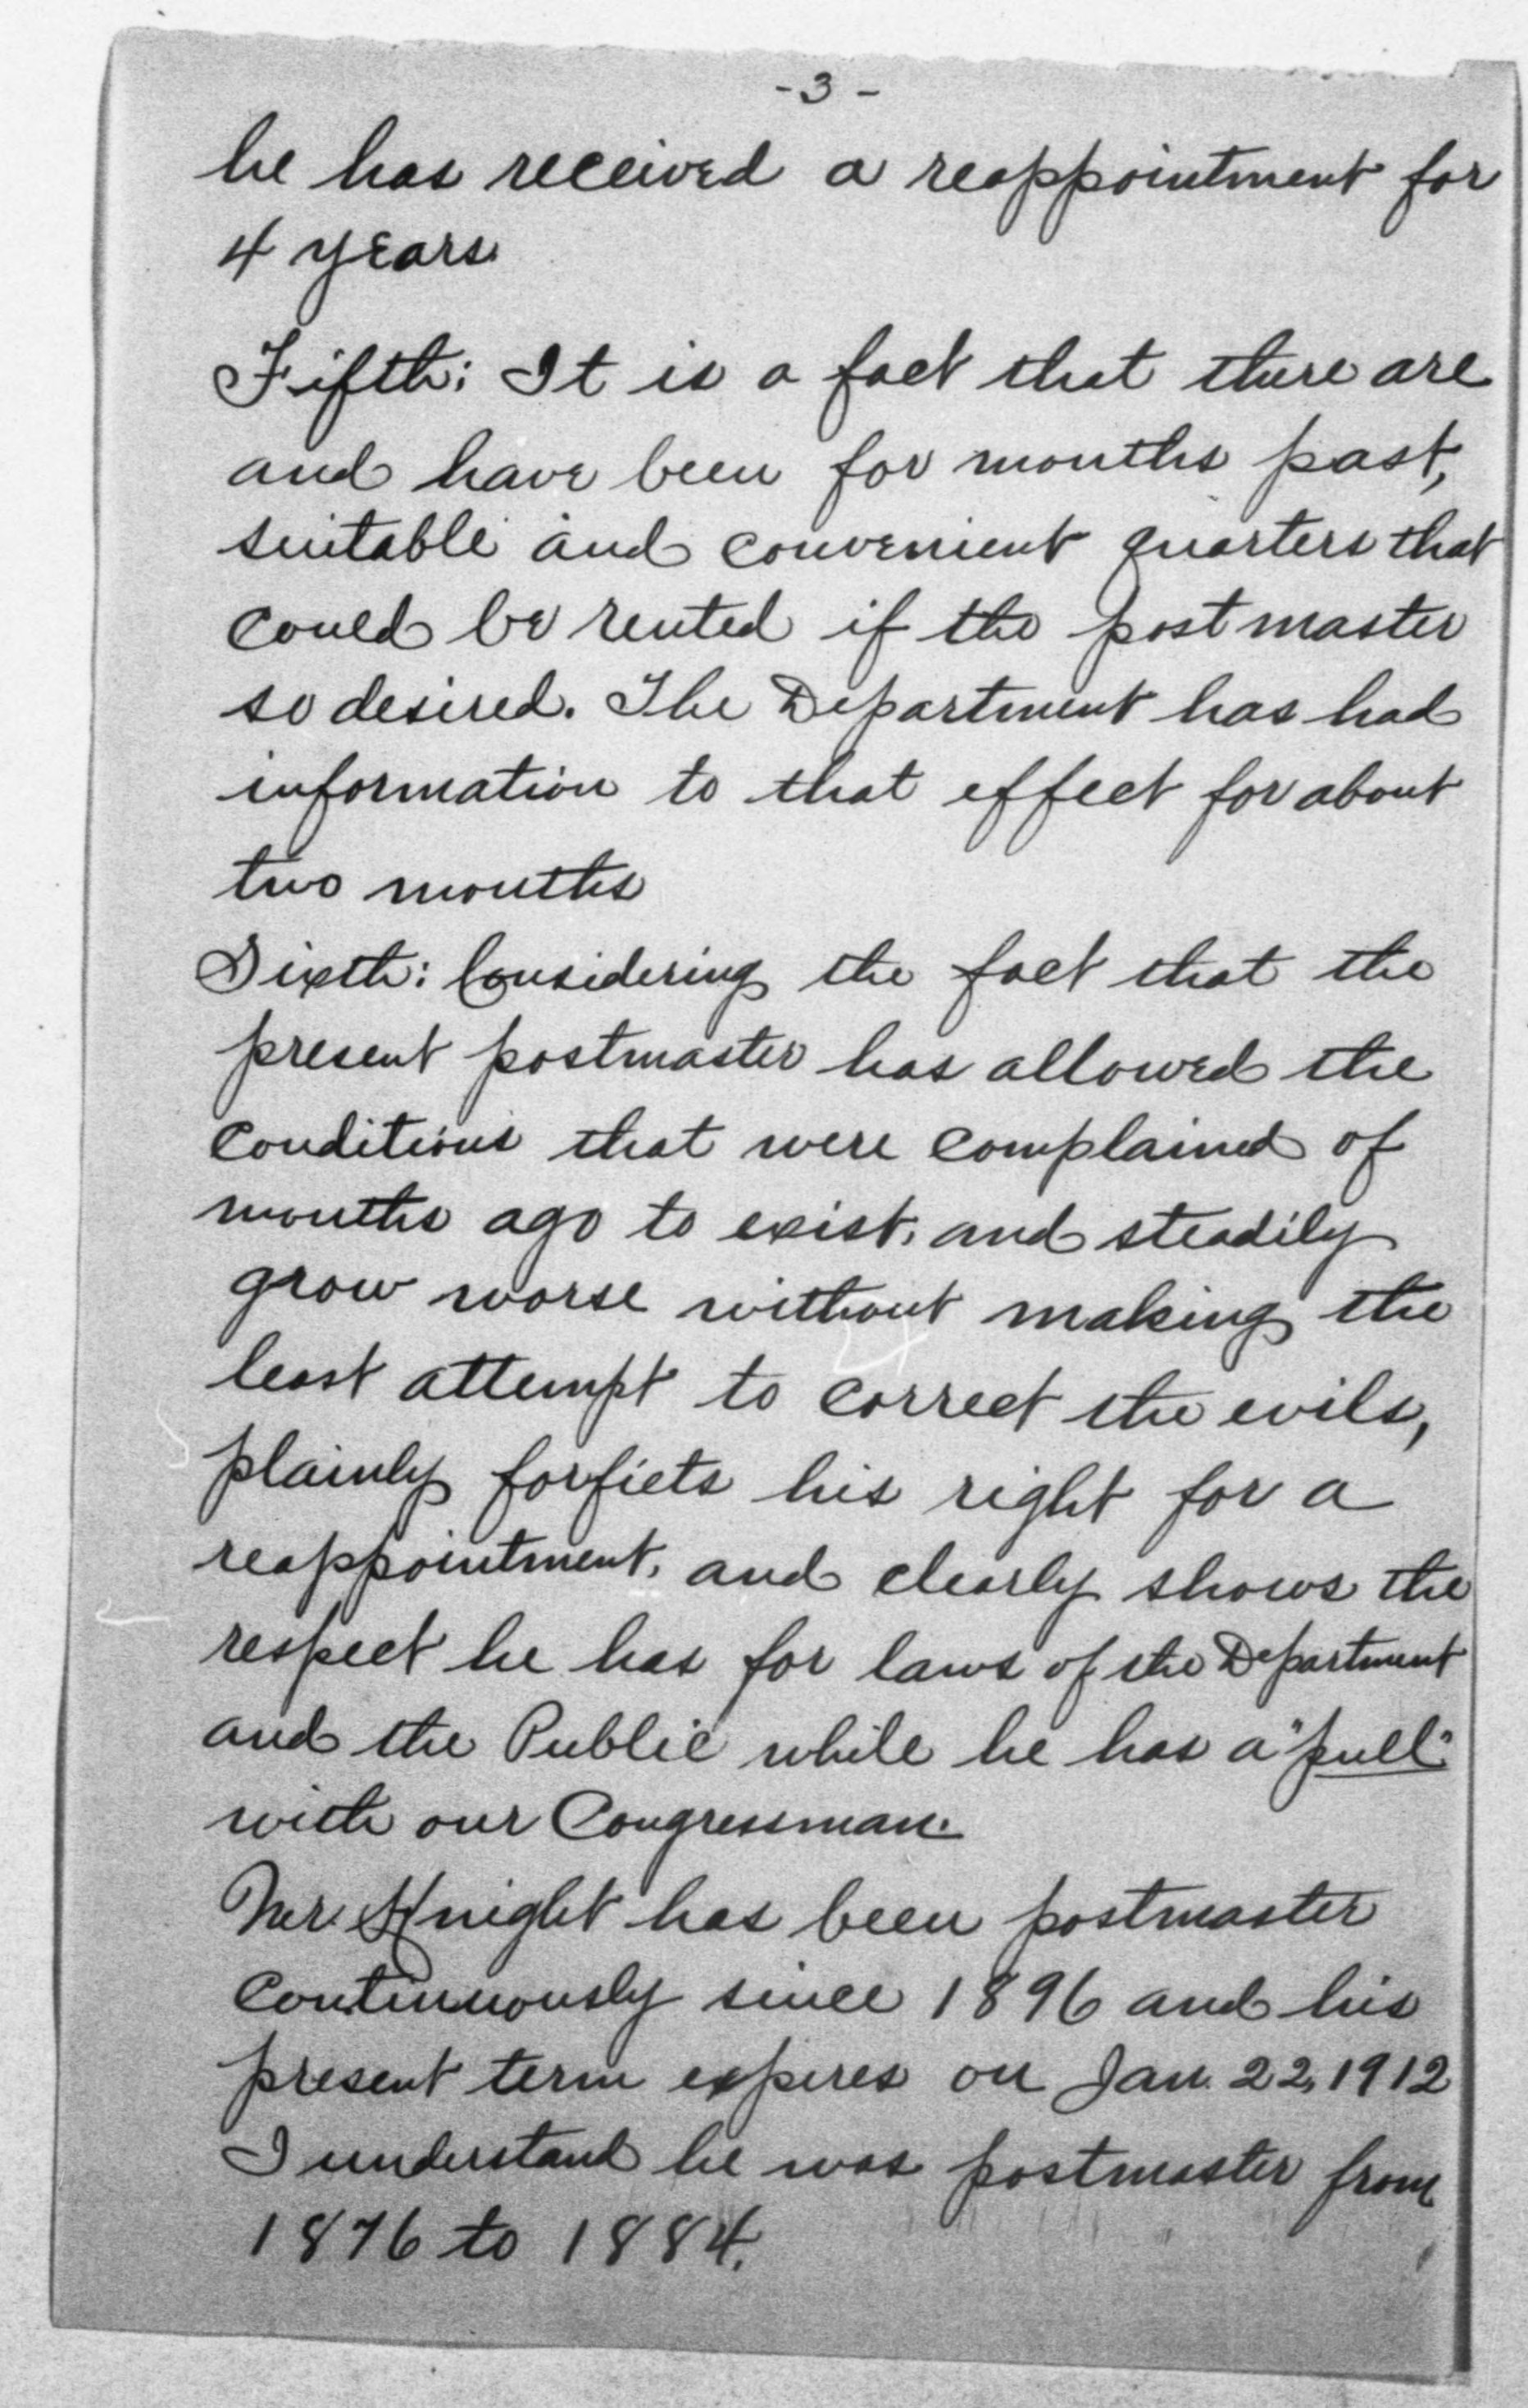 -3-
he has received a reappointment for
4 years
Fifth: It is a fact that there are
and have been for months past,
suitable and convenient quarters that
could be rented if the postmaster
so desired. The Department has had
information to that effect for about
two months
Sixth: Considering the fact that the
present postmaster has allowed the
conditions that were complained of
months ago to exist, and steadily
grow worse without making the
least attempt to correct the evils,
plainly forfiets his right for a
reappointment, and clearly shows the
respect he has for laws of the Department
and the Public while he has a "pull"
with our Congressman.
Mr. Knight has been postmaster
continuously since 1896 and his
present term expires on Jan. 22, 1912
I understand he was postmaster from
1876 to 1884.